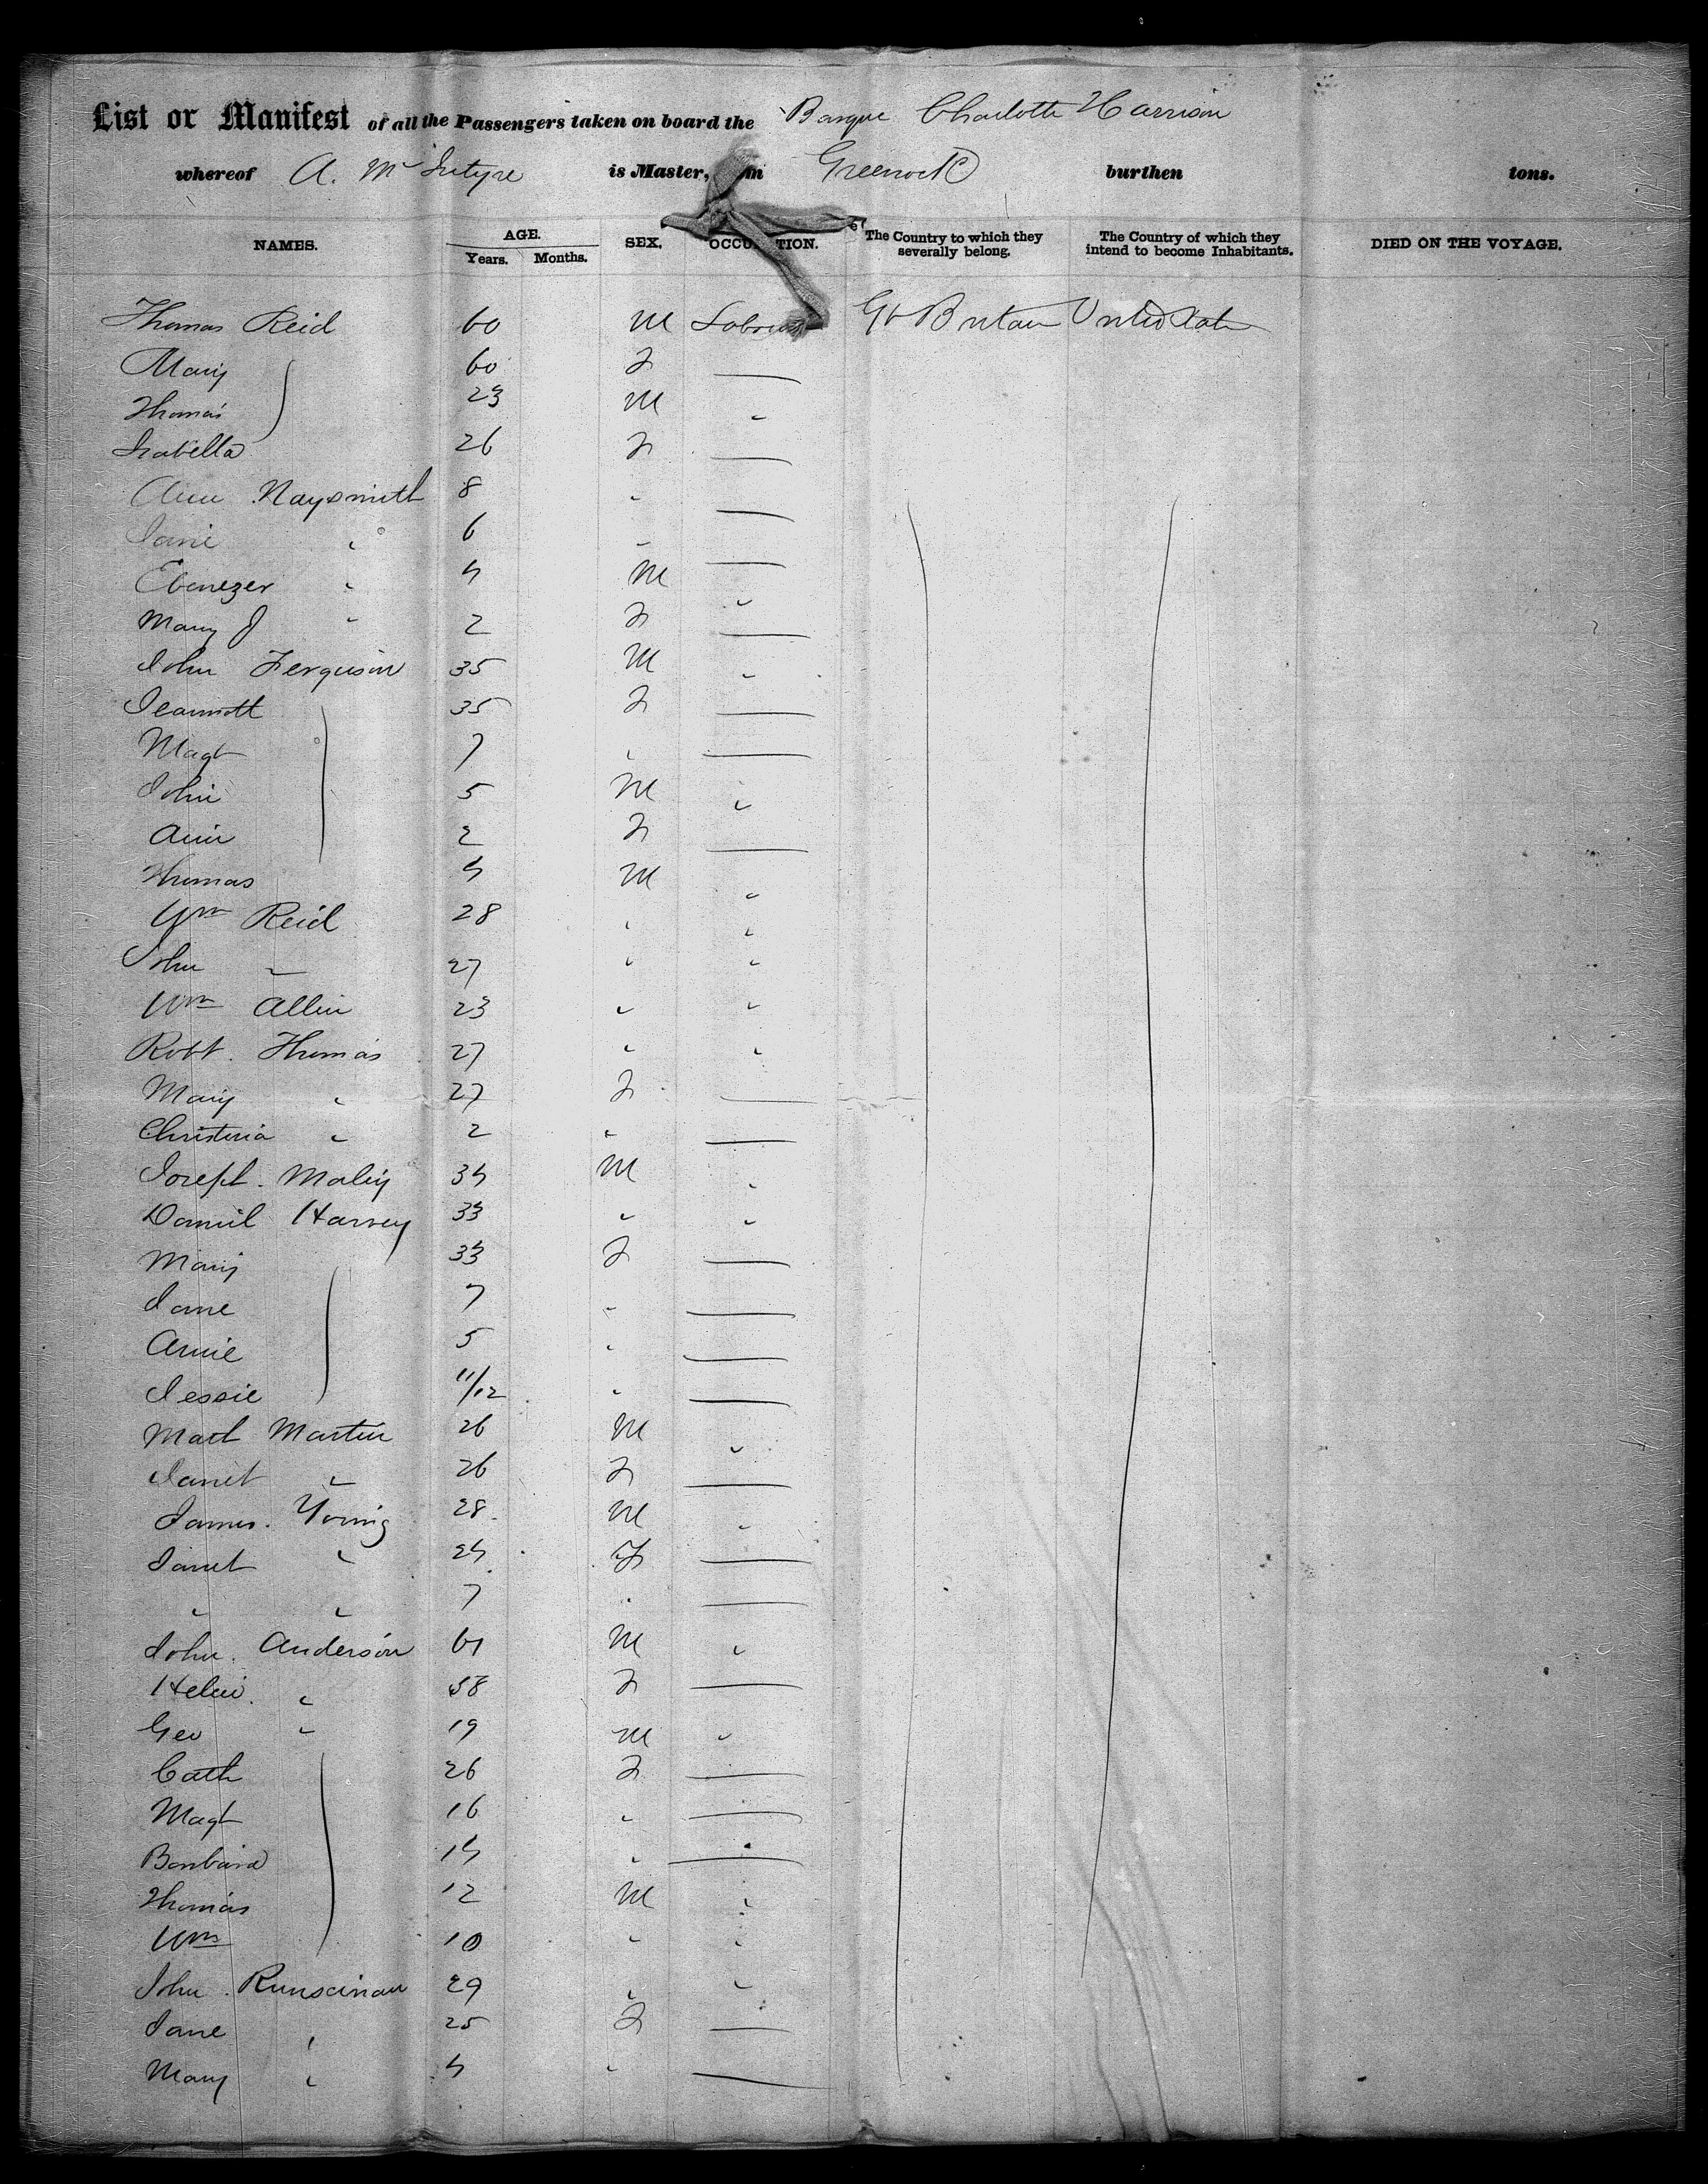 List or Manifest of all the Passengers taken on board the Barque Charlotte Harrison
whereof A. McIntyre is Master, Greenock burthen tons.
NAMES. AGE. Years. Months. SEX. OCCUPATION. The Country to which they severally belong. The Country of which they intend to become Inhabitants. DIED ON THE VOYAGE.
Thomas Reid 60 M Labourer Gt Britain United States
Mary 60 F —
Thomas 23 M "
Isabella 26 F —
Ann Naysmith 8 " —
Jane " 6 " —
Ebenezer " 4 M "
Mary J " 2 F —
John Ferguson 35 M "
Jeannott 35 F —
Magt 7 " —
John 5 M "
Ann 2 F —
Thomas 4 M "
Wm Reid 28 " "
John " 27 " "
Wm Allin 23 " "
Robt. Thomas 27 " "
Mary " 27 F —
Christina " 2 " —
Joseph. 34 M "
Daniel Harvey 33 " "
Mary 33 F —
Jane 7 " —
Annie 5 " —
Jessie 11/12 " —
Mart Martin 26 M "
Janet " 26 F —
James. Young 28 M "
Janet " 24 F —
" " 7 " —
John. Anderson 61 M "
Helen. " 58 F —
Geo " 19 M "
Cath 26 F —
Magt 16 " —
Barbara 14 " —
Thomas 12 M "
Wm 10 " "
John. Runsciman 29 " "
Jane " 25 F —
Mary " 4 " —